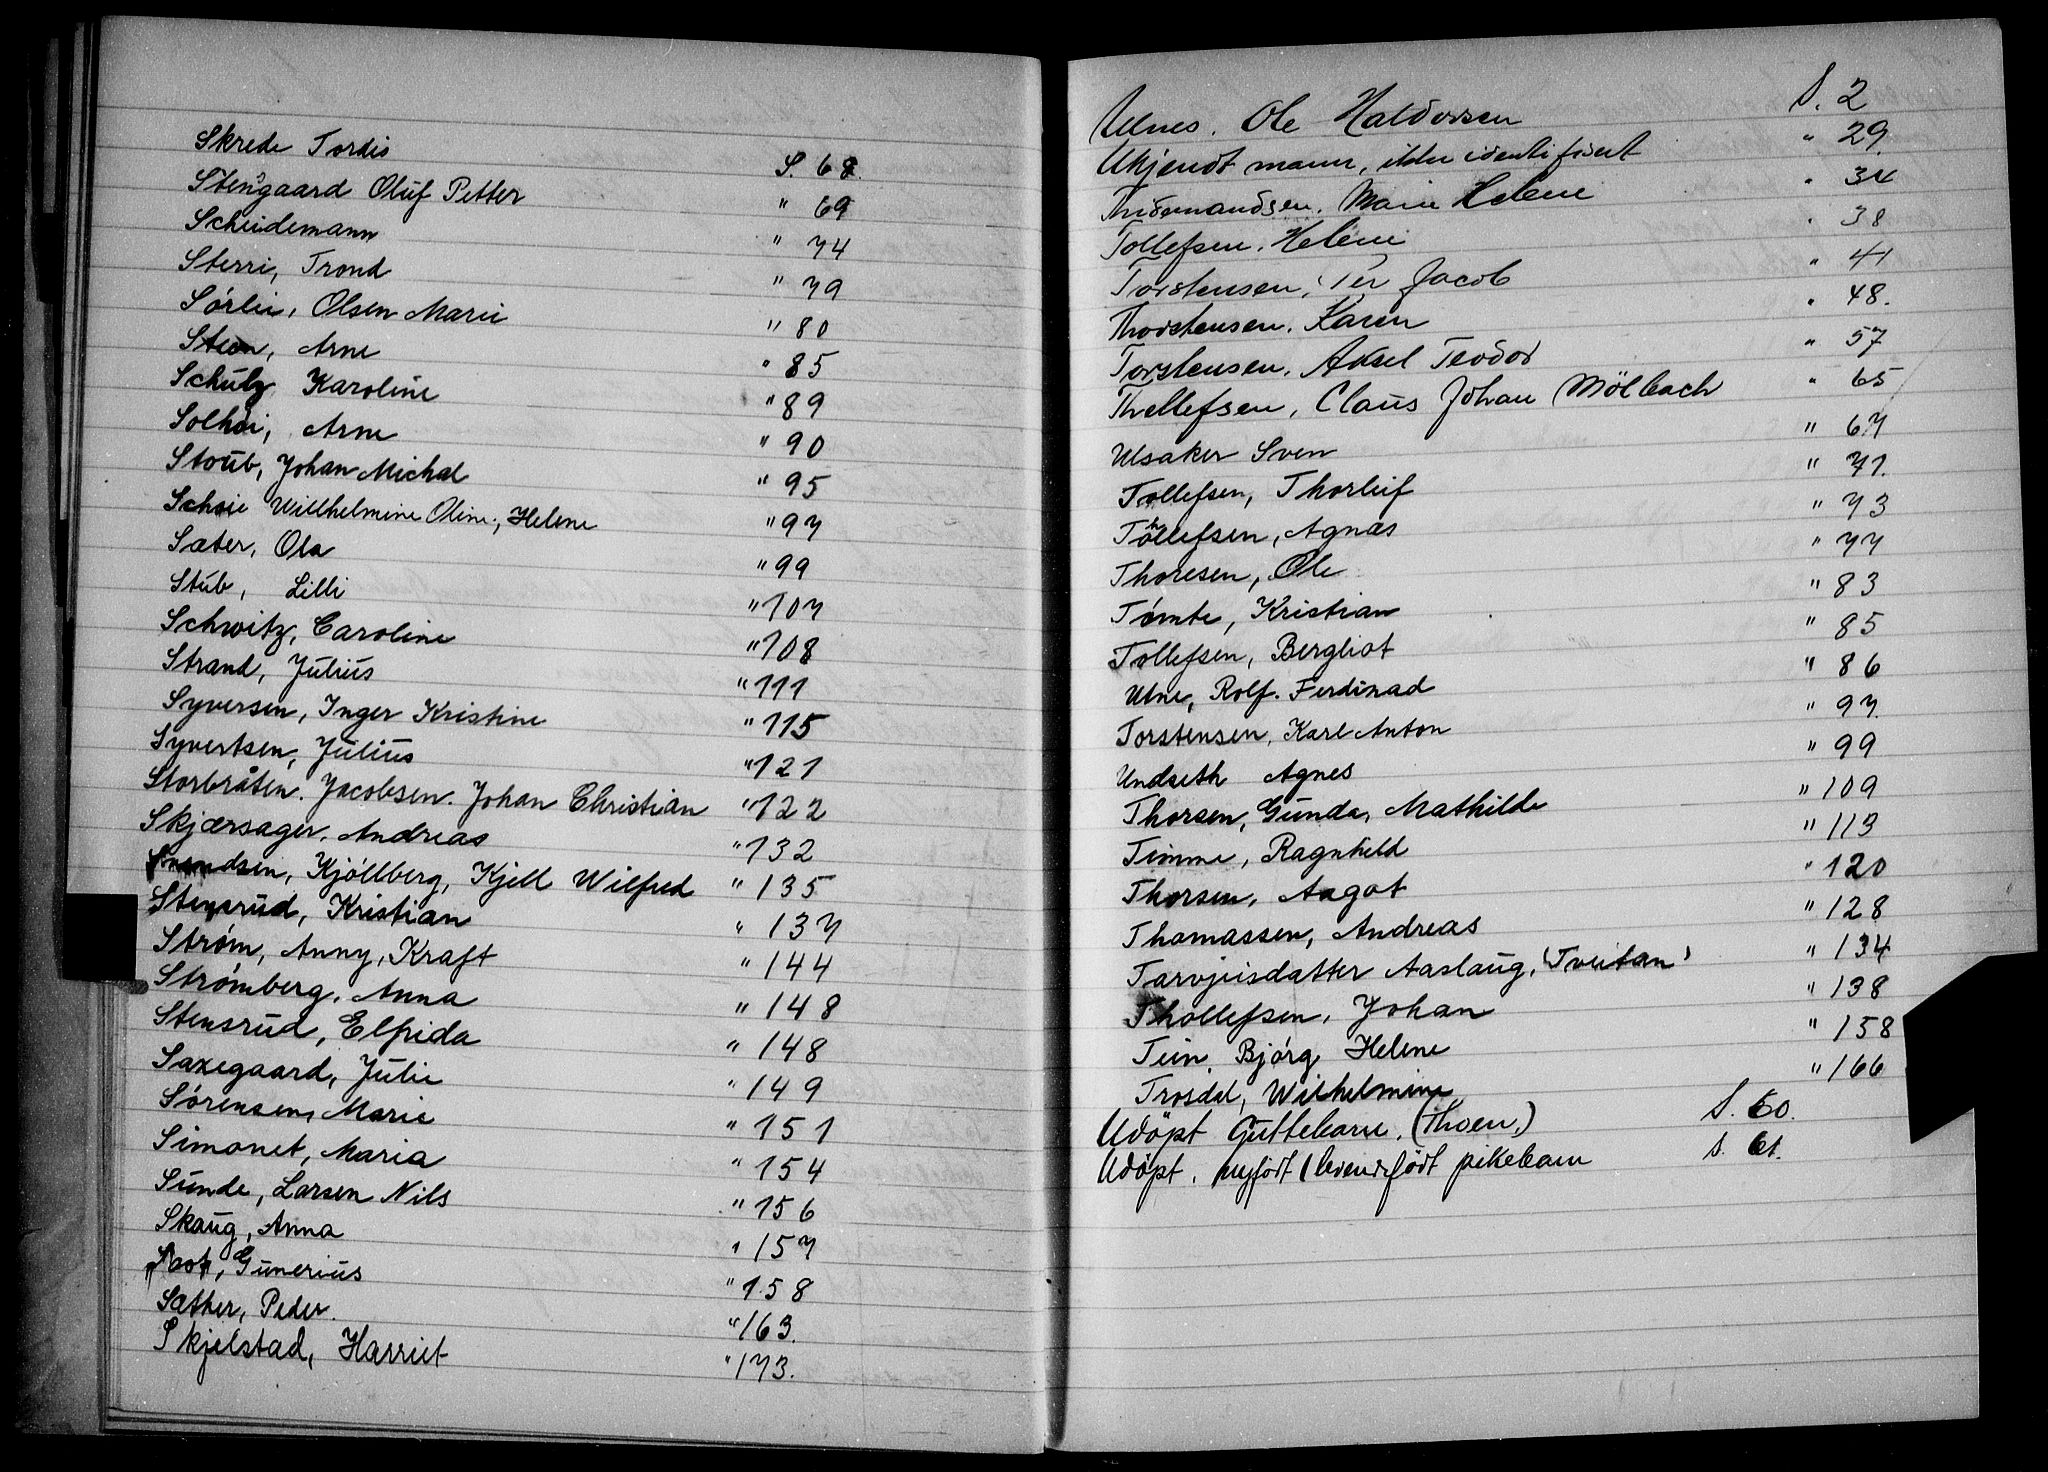 Skrede Tordis S. 68.
Stensgaard Oluf Petter " 69
Scheidemann " 74
Sterri, Trond " 79
Sörlie, Olsen Marie " 80
Steen, Arne " 85
Schulz Karoline " 89
Solhøi, Arne " 90
Stoub, Johan Michal " 95
Schoie Willhelmine Oline, Helene " 97
Sæter, Ola " 99
Stub, Lilli " 107
Schwitz, Caroline " 108
Strand, Julius " 111
Syversen, Inger Kristine " 115
Syvertsen, Julius " 121
Storbråten. Jacobsen. Johan Christian " 122
Skjærsager, Andreas " 132
Svendsen, Kjöllberg, Kjell Wilfred " 135
Stensrud, Kristian " 137
Strøm, Anny, Kraft " 144
Strømberg, Anna " 148
Stensrud, Elfrida " 148
Saxegaard, Julie " 149
Sørensen, Marie " 151
Simonet, Maria " 154
Sunde, Larsen Nils " 156
Skaug, Anna " 157
Gunerius " 158
Sæther, Peder. " 163.
Skjelstad, Harriet " 173.
Ulnes. Ole Haldorsen S. 2
Ukjendt mann, ikke identifisert " 29.
Marie Helene " 34
Tollefsen. Helene " 38
Torstensen, Per Jacob " 41
Thorstensen. Karen " 48.
Torstensen. Aksel Teodor " 57
Thellefsen, Claus Johan Mölbach " 65
Ulsaker Sven " 67
Tollefsen, Thorleif " 71.
Thollefsen, Agnas " 73
Thoresen, Ole " 77
Tømte, Kristian " 83
Tollefsen, Bergliot " 85
Utne, Rolf. Ferdinad " 86
Torstensen, Karl Anton " 97.
Undseth Agnes " 99
Thorsen, Gunda, Mathilde " 109
Timme, Ragnhild " 113
Thorsen, Aagot " 120
Thomassen, Andreas " 128
Tarvjeisdatter Aaslaug, (Tveitan) " 134
Thollefsen, Johan " 138
Tein, Bjørg Helene " 158
Trosdal, Wilhelmine " 166
Udöpt Guttebarn. (Thoen.) S. 60.
Udöpt. nyfödt (levendefödt pikebarn S. 61.